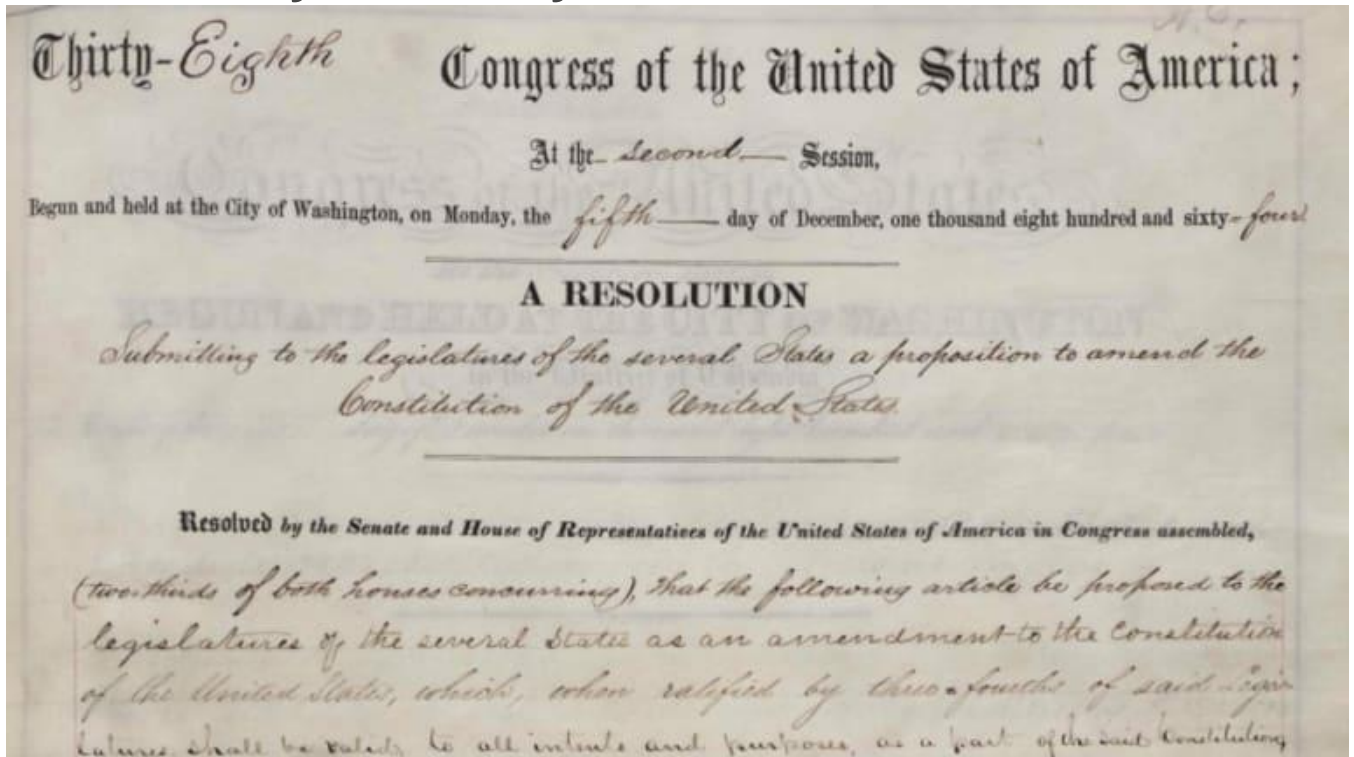 Thirty-Eighth Congress of the United States of America;
At the second Session,
Begun and held at the City of Washington, on Monday, the fifth day of December, one thousand eight hundred and sixty-four
A RESOLUTION
Submitting to the legislatures of the several States a proposition to amend the
Constitution of the United States.
Resolved by the Senate and House of Representatives of the United States of America in Congress assembled,
(two-thirds of both houses concurring), That the following article be proposed to the
legislatures of the several States as an amendment to the Constitution
of the United States, which, when ratified by three-fourths of said Legis-
latures shall be valid, to all intents and purposes, as a part of the said Constitution,